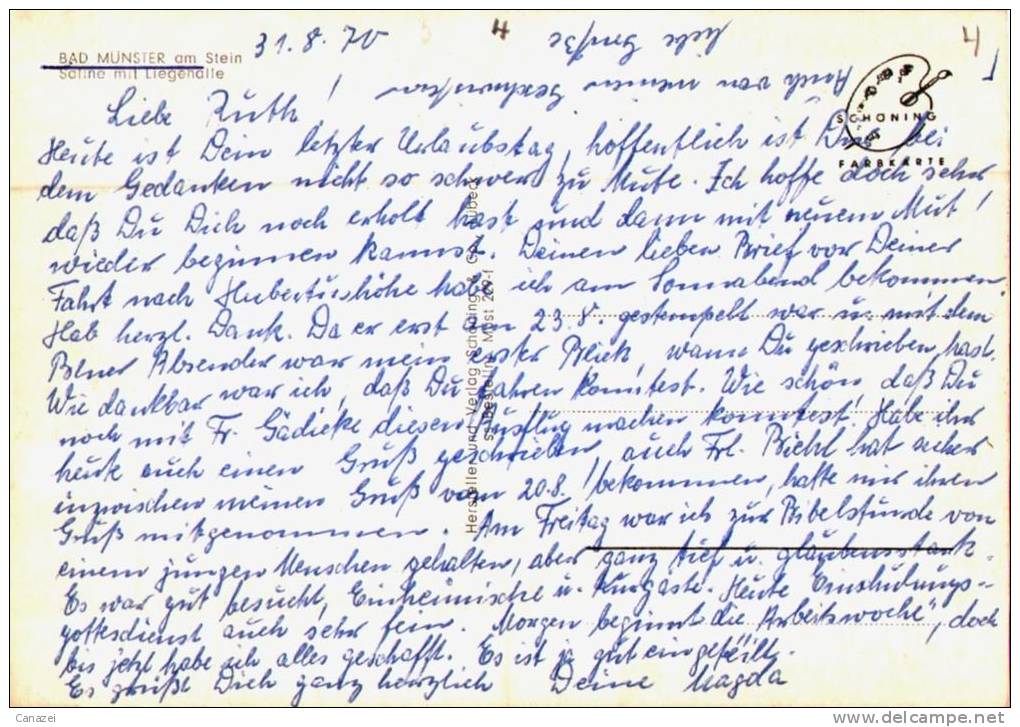 BAD MÜNSTER am Stein
Saline mit Liegehalle
31. 8. 70
4
4
Auch von meinen Geschwistern
liebe Grüße!
SCHÖNING
FARBKARTE
Liebe Ruth!
Heute ist Dein letzter Urlaubstag, hoffentlich ist Dir bei
dem Gedanken nicht so schwer zu Mute. Ich hoffe doch sehr
daß Du Dich noch erholt hast und dann mit neuem Mut
wieder beginnen kannst. Deinen lieben Brief vor Deiner
Fahrt nach Hubertushöhe habe ich am Sonnabend bekommen.
Hab herzl. Dank. Da er erst am 23.8. gestempelt war u. mit dem
Absender war mein erster Blick, wann Du geschrieben hast.
Wie dankbar war ich, daß Du fahren konntest. Wie schön, daß Du
noch mit Fr. Gädicke diesen Ausflug machen konntest! Habe ihr
heute auch einen Gruß geschrieben, auch Frl. Biehl hat sicher
inzwischen meinen Gruß vom 20.8. bekommen, hatte mir ihren
Gruß mitgenommen. Am Freitag war ich zur Bibelstunde von
einem jungen Menschen gehalten, aber ganz tief u. glaubensstark.
Es war gut besucht, Einheimische u. Kurgäste. Heute Einschulungs-
gottesdienst auch sehr fein. Morgen beginnt die "Arbeitswoche", doch
bis jetzt habe ich alles geschafft. Es ist ja gut eingeteilt.
Es grüßt Dich ganz herzlich Deine Magda
Hersteller und Verlag Schöning & Co., Lübeck
Canazei
www.delcampe.net